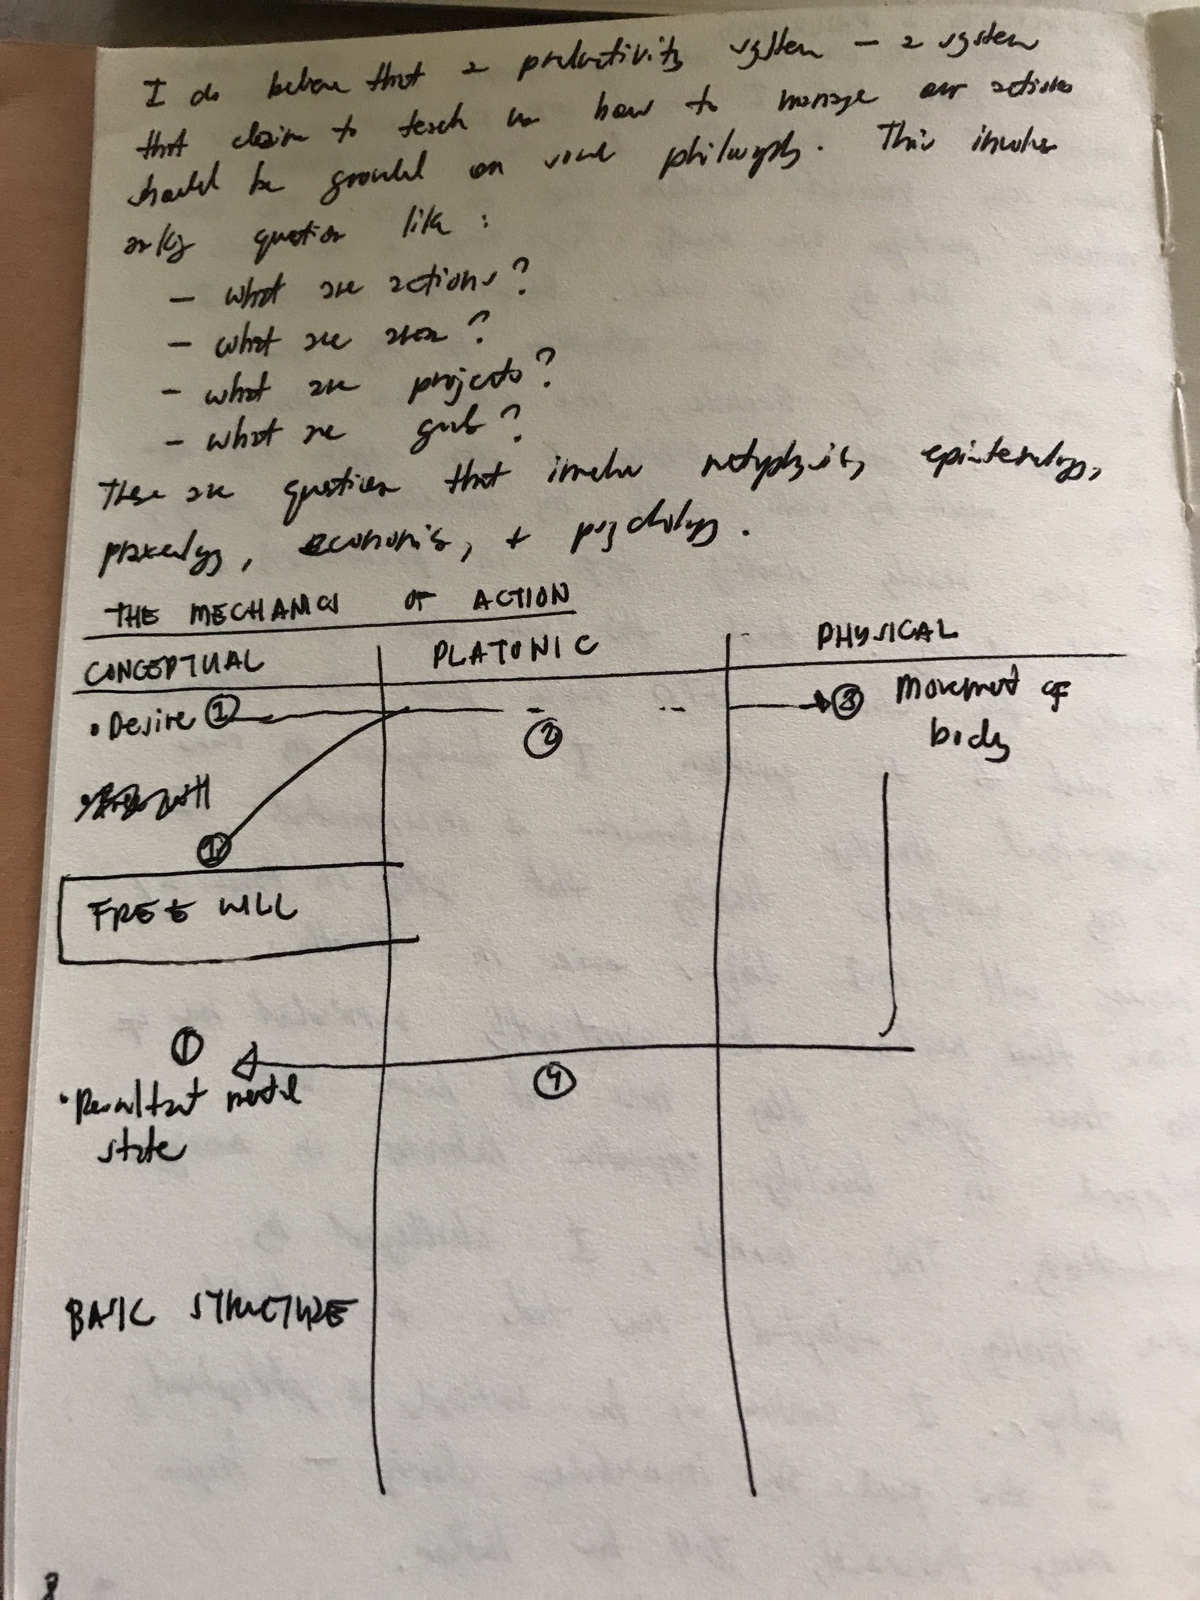 I do believe that a productivity system — a system
that claim to teach us how to manage our actions
should be grounded on some philosophy. This involves
asking question like :
- what are actions?
- what are areas?
- what are projects?
- what are goals?
These are questions that involve metaphysics, epistemology,
praxeology, economics, + psychology.
THE MECHANICS OF ACTION
CONCEPTUAL PLATONIC PHYSICAL
• Desire ① ② ③ Movement of
body
①
FREE WILL
①
④
• Resultant mental
state
BASIC STRUCTURE
8